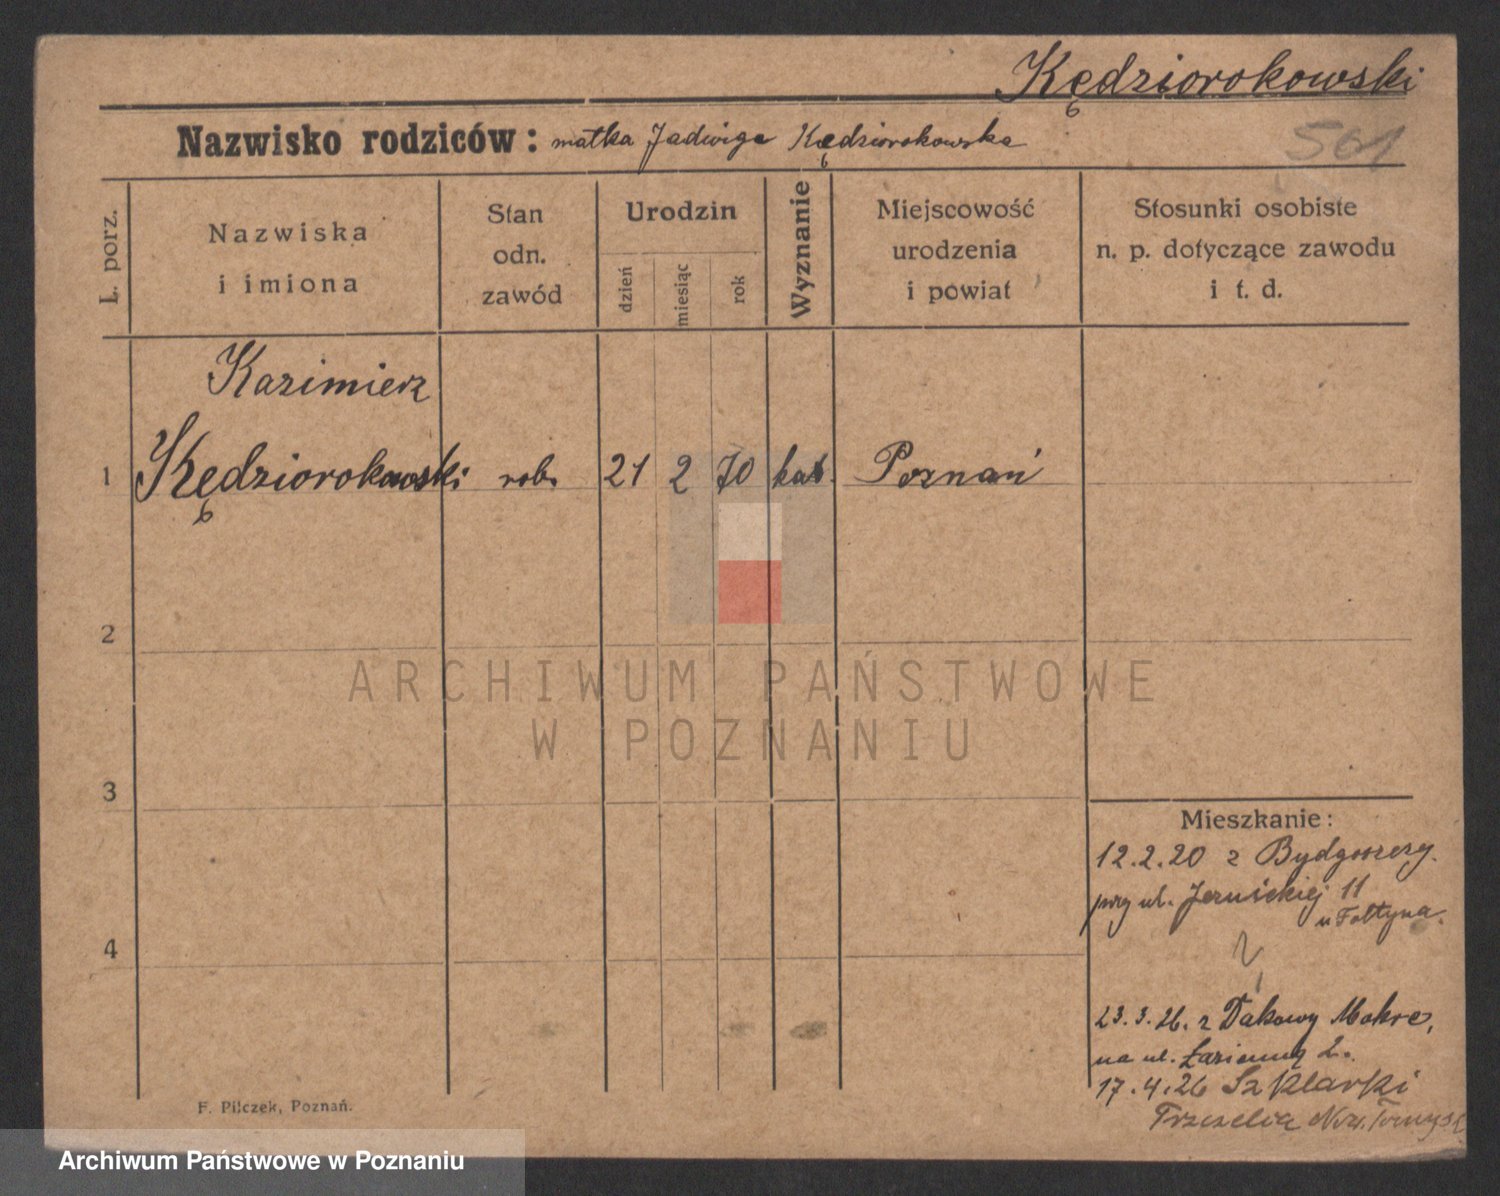 Kędziorokowski
Nazwisko rodziców: matka Jadwiga Kędziorokowska
561
L. porz.
Nazwiska
i imiona
Stan
odn.
zawód
Urodzin
dzień
miesiąc
rok
Wyznanie
Miejscowość
urodzenia
i powiat
Stosunki osobiste
n. p. dotyczące zawodu
i t. d.
Kazimierz
1 Kędziorokowski rob. 21 2 70 kat. Poznań
2
ARCHIWUM PAŃSTWOWE
W POZNANIU
3
Mieszkanie:
12.2.20 z Bydgoszczy.
przy ul. 11
u Foltyna.
4
23.3.26. z Dakowy Mokre,
na ul. Łazienną 2.
17.4.26 Szklarki
Trzcielia Now. Tomysl
F. Pilczek, Poznań.
Archiwum Państwowe w Poznaniu